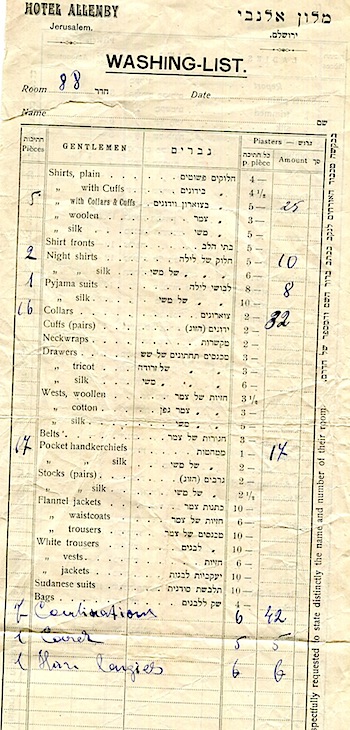 HOTEL ALLENBY מלון אלנבי
Jerusalem. ירושלם.
WASHING-LIST.
Room 88 חדר Date
Name שם
חתיכות Pièces GENTLEMEN גברים Piasters — גרוש
כל חתיכה p. piece Amount סך
Shirts, plain חלוקים פשוטים 4 —
„ with Cuffs „ בידונים 4 1/2
5 „ with Collars & Cuffs „ בצוארון וידונים 5 — 25
„ woolen „ צמר 3 —
„ silk „ משי 5 —
Shirt fronts בתי הלב 5
2 Night shirts חלוק של לילה 5 — 10
„ „ silk „ „ של משי 6 —
1 Pyjama suits לבושי לילה 8 — 8
„ silk „ „ של משי 10 —
16 Collars צוארונים 2 — 32
Cuffs (pairs) ידונים (הזוג) 2 —
Neckwraps 2 —
Drawers מכנסים תחתונים של שש 3 —
„ tricot „ 3 —
„ silk „ משי 6 —
Wests, woollen חזיות של צמר 3 1/2
„ cotton „ צמר גפן 3 —
„ silk „ משי 5 —
Belts חגורות של צמר 2 —
17 Pocket handkerchiefs ממחטות 1 — 17
„ „ silk „ של משי 2 —
Stocks (pairs) גרבים (הזוג) 2 —
„ silk „ של משי 2 1/2
Flannel jackets כתנות צמר 10 —
„ waistcoats חזיות של צמר 6 —
„ trousers מכנסים של צמר 10 —
White trousers „ לבנים 10 —
„ vests חזיות 6 —
„ jackets לבנות 10 —
Sudanese suits תלבשת סודנית
Bags שק ללבנים 4 —
7 Combinations 6 42
1 5 5
1 6 6
spectfully requested to state distinctly the name and number of their room.